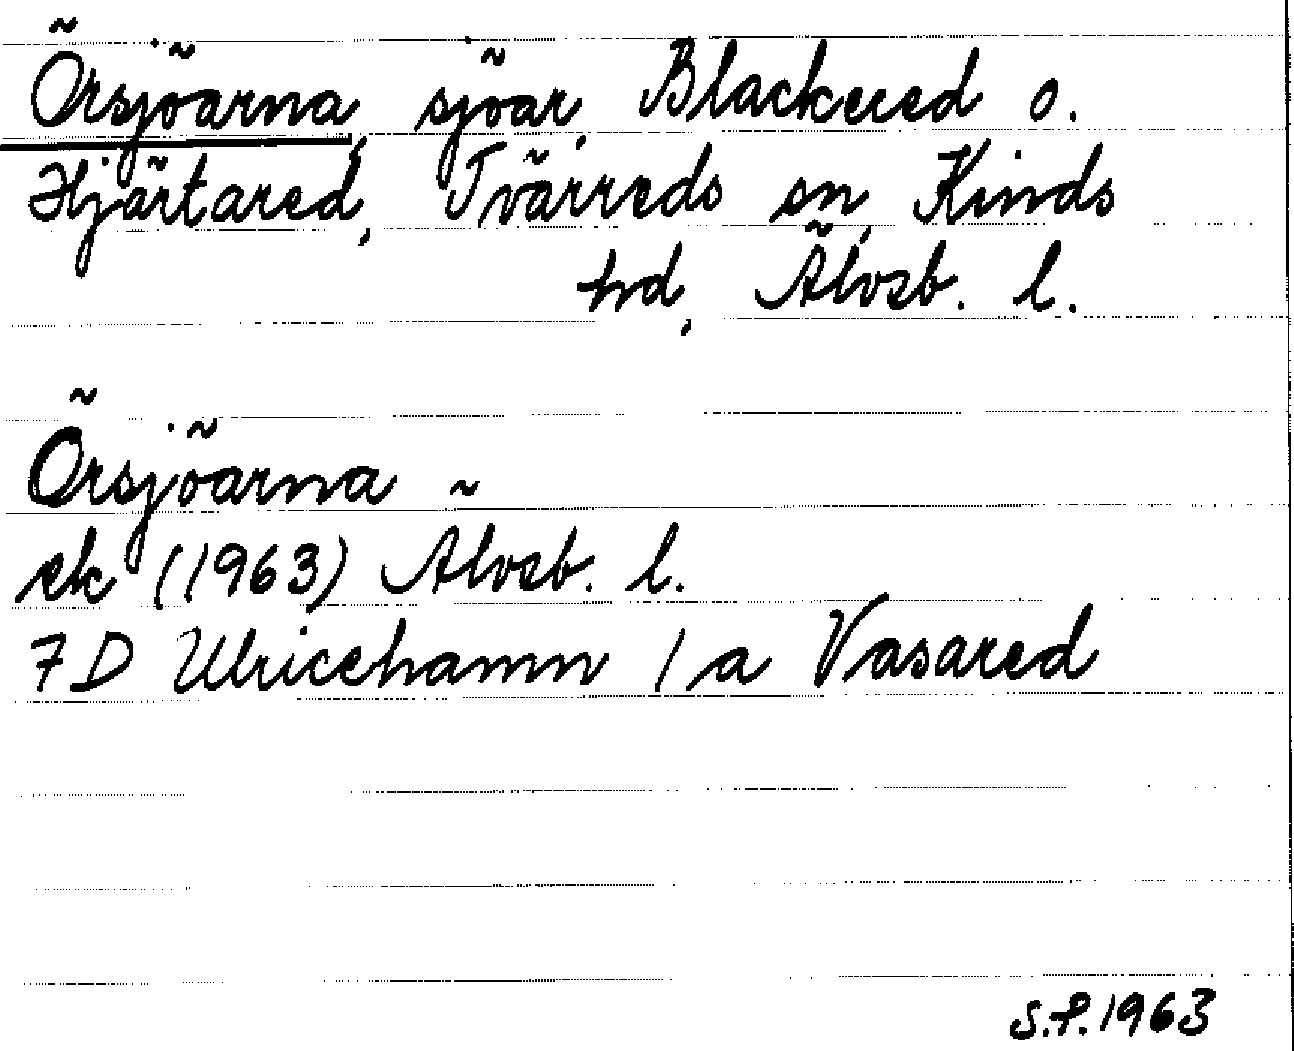 Örsjöarna, sjöar, Blackered o.
Hjärtared, Tvärreds sn, Kinds
hd, Älvsb. l.
Örsjöarna
ek (1963) Älvsb. l.
7D Ulricehamn / a Vasared
S.P. 1963